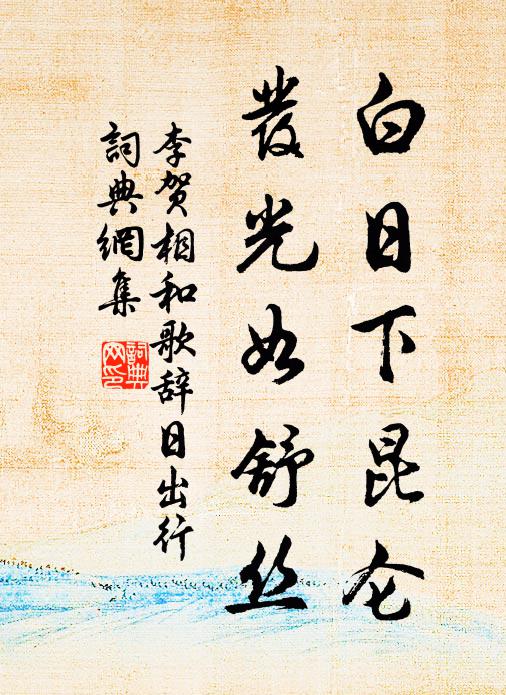 白日下昆仑
發光如舒丝
李贺相和歌辞日出行
詞典網集
詞典網印